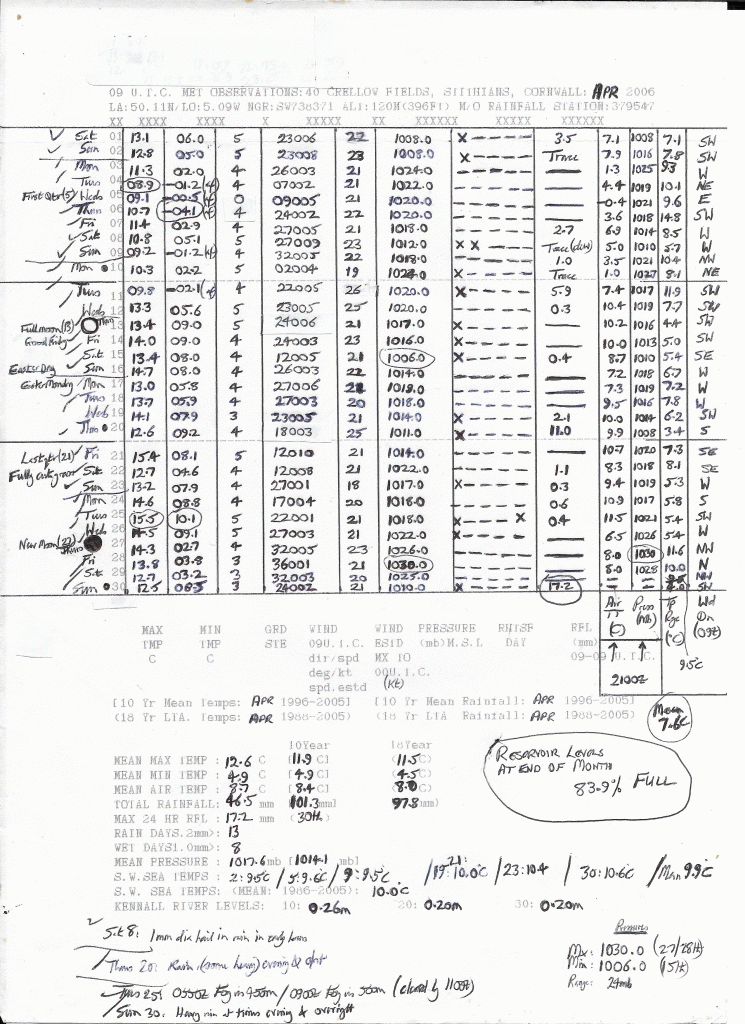 09 U.T.C. MET OBSERVATIONS:40 CRELLOW FIELDS, STITHIANS, CORNWALL: APR 2006
LA:50.11N/LO:5.09W NGR:SW738371 ALT:120M(396FT) M/O RAINFALL STATION:379547
XX XXXX XXXX X XXXXX XX XXXXXX XXXXX XXXXX XXXXXX
Sat 01 13.1 06.0 5 23006 22 1008.0 X---- 3.5 7.1 1008 7.1 SW
Sun 02 12.8 05.0 5 23008 23 1008.0 X---- Trace 7.9 1016 7.8 SW
Mon 03 11.3 02.0 4 26003 21 1024.0 ----- — 1.3 1025 9.3 W
Tues 04 08.9 -01.2 (4) 4 07002 21 1022.0 ----- — 4.4 1019 10.1 NE
First Qtr (5) Weds 05 09.1 -00.5 (4) 0 09005 21 1020.0 ----- — -0.4 1021 9.6 E
Thurs 06 10.7 -04.1 (4) 4 24002 22 1020.0 ----- — 3.6 1018 14.8 SW
Fri 07 11.4 02.9 4 27005 21 1018.0 ----- 2.7 6.9 1014 8.5 W
Sat 08 10.8 05.1 5 27009 23 1012.0 X X---- Trace (dew) 5.0 1010 5.7 W
Sun 09 09.2 -01.2 (4) 4 32005 22 1018.0 ----- 1.0 3.5 1021 10.4 NW
Mon 10 10.3 02.2 5 02004 19 1024.0 ----- Trace 1.0 1027 8.1 NE
Tues 11 09.8 -02.1 (4) 4 22005 26 1020.0 X---- 5.9 7.4 1017 11.9 SW
Weds 12 13.3 05.6 5 23005 25 1020.0 ----- 0.3 10.4 1019 7.7 SW
Full moon (13) Thurs 13 13.4 09.0 5 24006 21 1017.0 ----- — 10.2 1016 4.4 SW
Good Friday Fri 14 14.0 09.0 4 24003 23 1016.0 ----- — 10.0 1013 5.0 SW
Sat 15 13.4 08.0 4 12005 21 1006.0 X---- 0.4 8.7 1010 5.4 SE
Easter Day Sun 16 14.7 08.0 4 26003 22 1014.0 ----- — 7.2 1018 6.7 W
Easter Monday Mon 17 13.0 05.8 4 27006 21 1019.0 ----- — 7.3 1019 7.2 W
Tues 18 13.7 05.9 4 27003 20 1018.0 ----- — 9.5 1016 7.8 W
Weds 19 14.1 07.9 3 23005 21 1014.0 X---- 2.1 10.0 1014 6.2 SW
Thurs 20 12.6 09.2 4 18003 25 1011.0 X---- 11.0 9.9 1008 3.4 S
Last qtr (21) Fri 21 15.4 08.1 5 12010 21 1014.0 ----- — 10.7 1020 7.3 SE
Sat 22 12.7 04.6 4 12008 21 1022.0 ----- 1.1 8.3 1018 8.1 SE
Sun 23 13.2 07.9 4 27001 18 1017.0 X---- 0.3 9.4 1019 5.3 W
Mon 24 14.6 08.8 4 17004 20 1018.0 ----- 0.6 10.9 1017 5.8 S
Tues 25 15.5 10.1 5 22001 21 1018.0 X----X 0.4 11.5 1021 5.4 SW
Weds 26 14.5 09.1 5 27003 22 1022.0 ----- — 6.5 1026 5.4 W
New Moon (27) Thurs 27 14.3 02.7 4 32005 23 1026.0 ----- — 8.0 1030 11.6 NW
Fri 28 13.8 03.8 4 36001 21 1030.0 ----- — 8.0 1028 10.0 N
Sat 29 12.7 03.2 3 32003 20 1025.0 ----- — NW
Sun 30 12.5 3 24002 21 1019.0 X---- 17.2 SW
MAX MIN GRD WIND WIND PRESSURE RFL
TMP TMP STE 09U.T.C. ESTD (mb)M.S.L DAY (mm)
C C dir/spd MX TO 09-09 U.T.C.
deg/kt 00U.T.C.
spd.estd (kt)
Air TT (°C) Press (Mb) Tp Rge (°C) Wd Dn (09Z)
9.5°C
2100Z
[10 Yr Mean Temps: APR 1996-2005] [10 Yr Mean Rainfall: APR 1996-2005]
(18 Yr LTA. Temps: APR 1988-2005) (18 Yr LTA Rainfall: APR 1988-2005)
Mean 7.6C
10Year 18Year
MEAN MAX TEMP : 12.6 C [11.9 C] (11.5 C)
MEAN MIN TEMP : 4.9 C [4.9 C] (4.5 C)
MEAN AIR TEMP : 8.7 C [8.4 C] (8.0 C)
TOTAL RAINFALL: 46.5 mm [101.3 mm] (97.8 mm)
MAX 24 HR RFL : 17.2 mm (30th)
RAIN DAYS.2mm>: 13
WET DAYS1.0mm>: 8
MEAN PRESSURE : 1017.6 mb [1014.1 mb]
RESERVOIR LEVELS
AT END OF MONTH
83.9% FULL
S.W.SEA TEMPS : 2:9.5C / 5:9.6C / 9:9.5C / 19:10.0C 21: / 23:10.4 / 30:10.6C / Mean 9.9C
S.W. SEA TEMPS: (MEAN: 1986-2005): 10.0C
KENNALL RIVER LEVELS: 10: 0.26m 20: 0.20m 30: 0.20m
Sat 8: 1mm dia hail in rain in early hours
Thurs 20: Rain (some heavy) evening & o/nt
Tues 25: 0550Z Fog vis 450m / 0900Z Fog vis 500m (cleared by 1100Z)
Sun 30: Heavy rain at times evening & overnight
Pressures
Max: 1030.0 (27/28th)
Min: 1006.0 (15th)
Range: 24mb